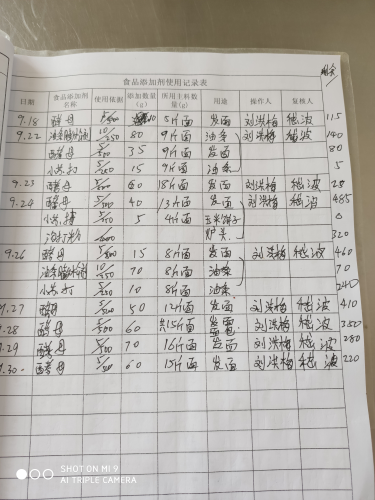 现金
食品添加剂使用记录表
日期 食品添加剂名称 使用依据 添加数量(g) 所用主料数量(g) 用途 操作人 复核人
9.18 酵母 5/500 5斤面 发面 刘洪梅 115
9.22 10/250 80 9斤面 油条 刘洪梅 140
酵母 5/500 35 9斤面 发面 80
小苏打 5/250 15 9斤面 油条 5
9.23 酵母 5/500 60 18斤面 发面 刘洪梅 28
9.24 酵母 5/500 40 13斤面 发面 刘洪梅 485
小苏 5 4斤面 玉米饼子 0
320
9.26 酵母 5/500 15 8斤面 发面 刘洪梅 460
10/250 70 8斤面 油条 70
小苏打 5/250 10 8斤面 油条 240
9.27 酵母 5/500 50 12斤面 发面 刘洪梅 410
.28 酵母 5/500 60 15斤面 发面 刘洪梅 350
.29 酵母 5/500 70 16斤面 发面 刘洪梅 280
.30 酵母 5/500 60 15斤面 发面 刘洪梅 220
SHOT ON MI 9
AI TRIPLE CAMERA